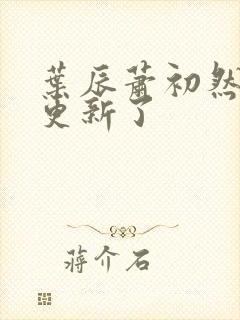 葉辰蕭初然
更新了
蔣介石